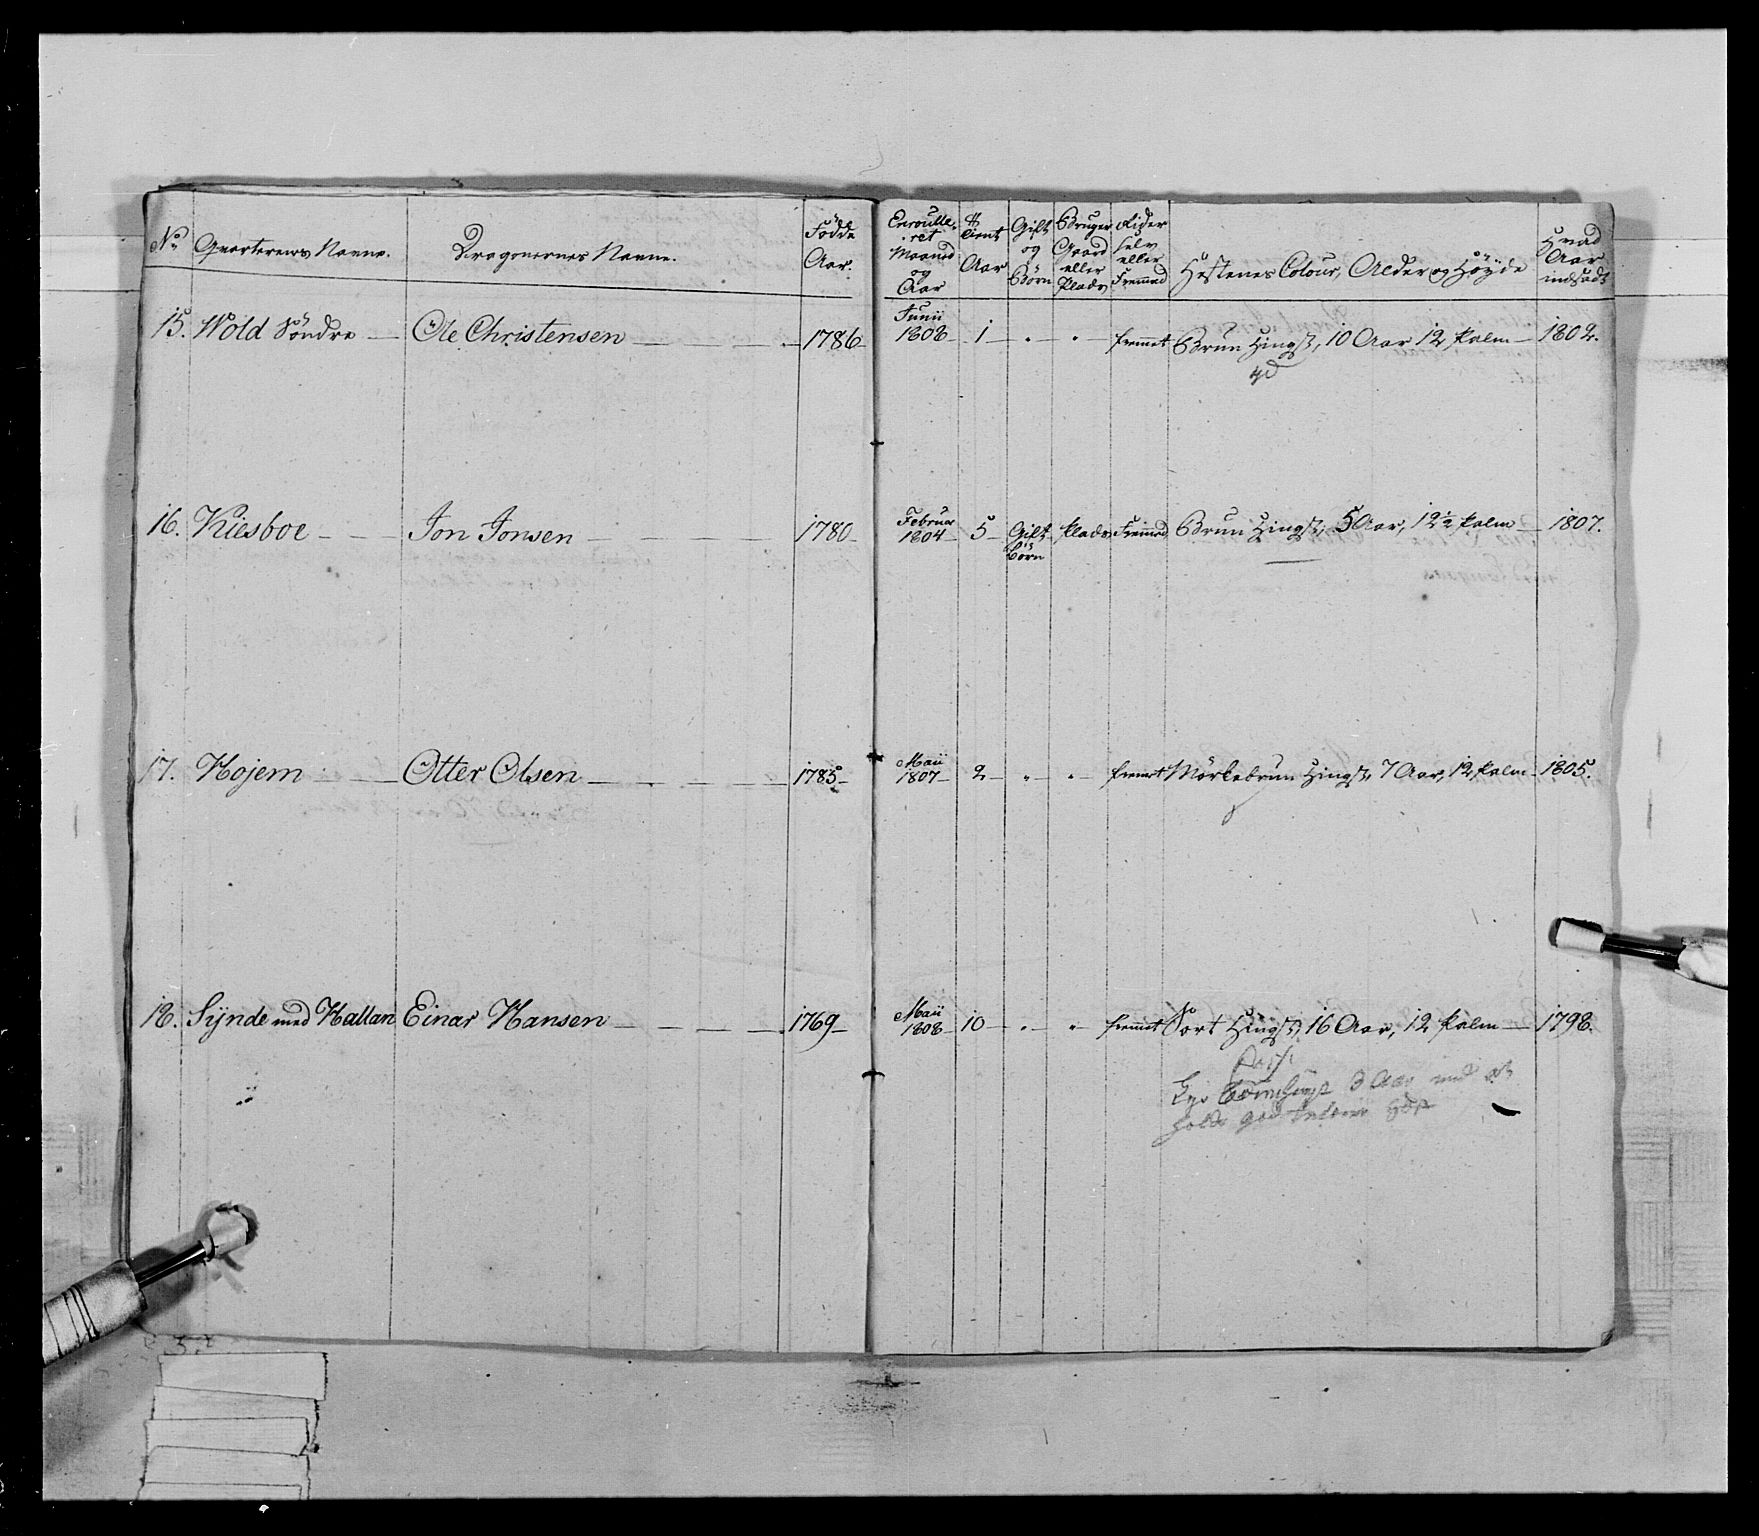 No Qvarterernes Navne. Dragonernes Navne. Födde Aar. Enroulleret Maaned og Aar Tient Aar Gift og Börn Bruger Gaard eller Plads Rider selv eller Fremmed Hestenes Colour, Alder og Höÿde Hvad Aar indsadt
15. Wold Söndre Ole Christensen 1786 Junii 1808 1 fremmet Brun Hingst, 10 Aar 12 palm 1802.
16. Kiesboe Jon Jonsen 1780 Februar 1804 5 Gift Börn Plads Fremmed Brun Hingst, 5 Aar, 12½ palm 1807.
17. Hojem Otter Olsen 1785 Maii 1807 2 fremet Mörkebrun Hingst 7 Aar, 12 palm 1805.
18. Sÿnde med Hallan Einar Hansen 1769 Maii 1808 10 fremet Sort Hingst, 16 Aar, 12 palm 1798.
3 Aar